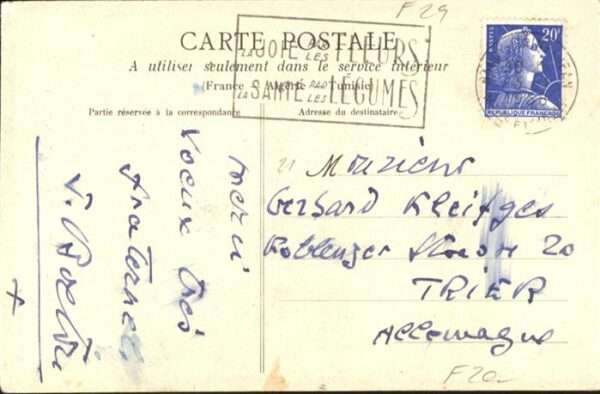 F 29
CARTE POSTALE
A utiliser seulement dans le service intérieur
(France Algérie Tunisie)
Partie réservée à la correspondance
Adresse du destinataire
LA JOIE PAR LES FLEURS
ET
LA SANTÉ PAR LES LÉGUMES
POSTES
20F
REPUBLIQUE FRANÇAISE
merci
voeux très
fraternels
Monsieur
Gerhard Kleifges
Koblenzer Strasse 20
TRIER
Allemagne
F 20.-